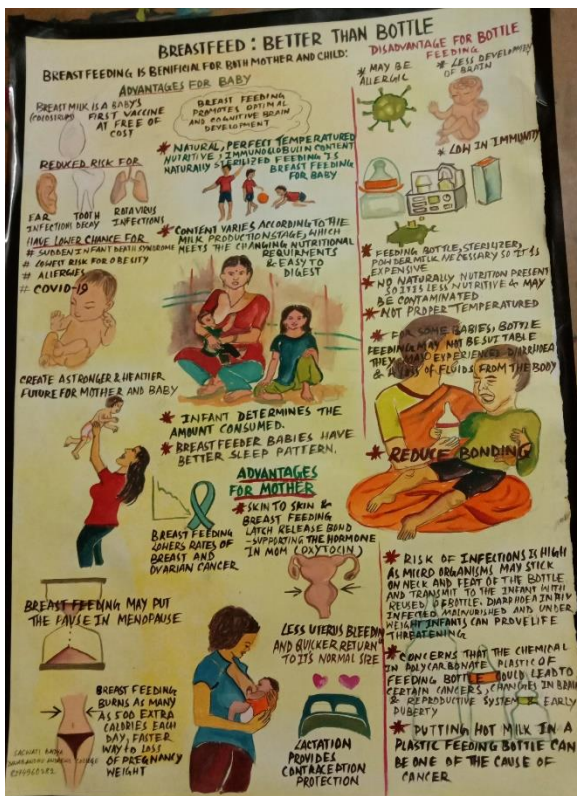 BREASTFEED: BETTER THAN BOTTLE
BREASTFEEDING IS BENIFICIAL FOR BOTH MOTHER AND CHILD:
ADVANTAGES FOR BABY
BREAST MILK IS A BABY'S
(COLOSTRUM) FIRST VACCINE
AT FREE OF
COST
BREAST FEEDING
PROMOTES OPTIMAL
AND COGNITIVE BRAIN
DEVELOPMENT
REDUCED RISK FOR
EAR
INFECTIONS
TOOTH
DECAY
ROTAVIRUS
INFECTIONS
* NATURAL, PERFECT TEMPERATURED
NUTRITIVE, IMMUNOGLOBULIN CONTENT
NATURALLY STERILIZED FEEDING IS
BREAST FEEDING
FOR BABY
HAVE LOWER CHANCE FOR
# SUDDEN INFANT DEATH SYNDROME
# LOWEST RISK FOR OBECITY
# ALLERGIES
# COVID-19
* CONTENT VARIES ACCORDING TO THE
MILK PRODUCTION STAGE, WHICH
MEETS THE CHANGING NUTRITIONAL
REQUIRMENTS
& EASY TO
DIGEST
CREATE A STRONGER & HEALTIER
FUTURE FOR MOTHER AND BABY
* INFANT DETERMINES THE
AMOUNT CONSUMED.
* BREASTFEEDER BABIES HAVE
BETTER SLEEP PATTERN.
ADVANTAGES
FOR MOTHER
* SKIN TO SKIN &
BREAST FEEDING
LATCH RELEASE BOND
- SUPPORTING THE HORMONE
IN MOM (OXYTOCIN)
BREAST FEEDING
LOWERS RATES OF
BREAST AND
OVARIAN CANCER
BREAST FEEDING MAY PUT
THE PAUSE IN MENOPAUSE
LESS UTERUS BLEEDIN
AND QUICKER RETURN
TO ITS NORMAL SIZE
BREAST FEEDING
BURNS AS MANY
AS 500 EXTRA
CALORIES EACH
DAY, FASTER
WAY TO LOSS
OF PREGNANCY
WEIGHT
LACTATION
PROVIDES
CONTRACEPTION
PROTECTION
DISADVANTAGE FOR BOTTLE
FEEDING
* MAY BE
ALLERGIC
* LESS DEVELOPME
OF BRAIN
* LOW IN IMMUNITY
* FEEDING BOTTLE, STERILIZER,
POWDER MILK NECESSARY SO IT IS
EXPENSIVE
* NO NATURALLY NUTRITION PRESENT
SO IT IS LESS NUTRITIVE & MAY
BE CONTAMINATED
* NOT PROPER TEMPERATURED
* FOR SOME BABIES, BOTTLE
FEEDING MAY NOT BE SUITABLE
THEY MAY EXPERIENCE DIARRHOEA
& LOSS OF FLUIDS FROM THE BODY
* REDUCE BONDING
* RISK OF INFECTIONS IS HIGH
AS MICRO ORGANISMS MAY STICK
ON NECK AND FEAT OF THE BOTTLE
AND TRANSMIT TO THE INFANT WITH
REUSED OF BOTTLE. DIARRHOEA IN HIV
INFECTED MALNURISHED AND UNDER
WEIGHT INFANTS CAN PROVE LIFE
THREATENING
* CONCERNS THAT THE CHEMICAL
IN POLYCARBONATE PLASTIC OF
FEEDING BOTT OULD LEAD TO
CERTAIN CANCERS, CHANGES IN BRAIN
& REPRODUCTIVE SYSTEM EARLY
PUBERTY
* PUTTING HOT MILK IN A
PLASTIC FEEDING BOTTLE CAN
BE ONE OF THE CAUSE OF
CANCER